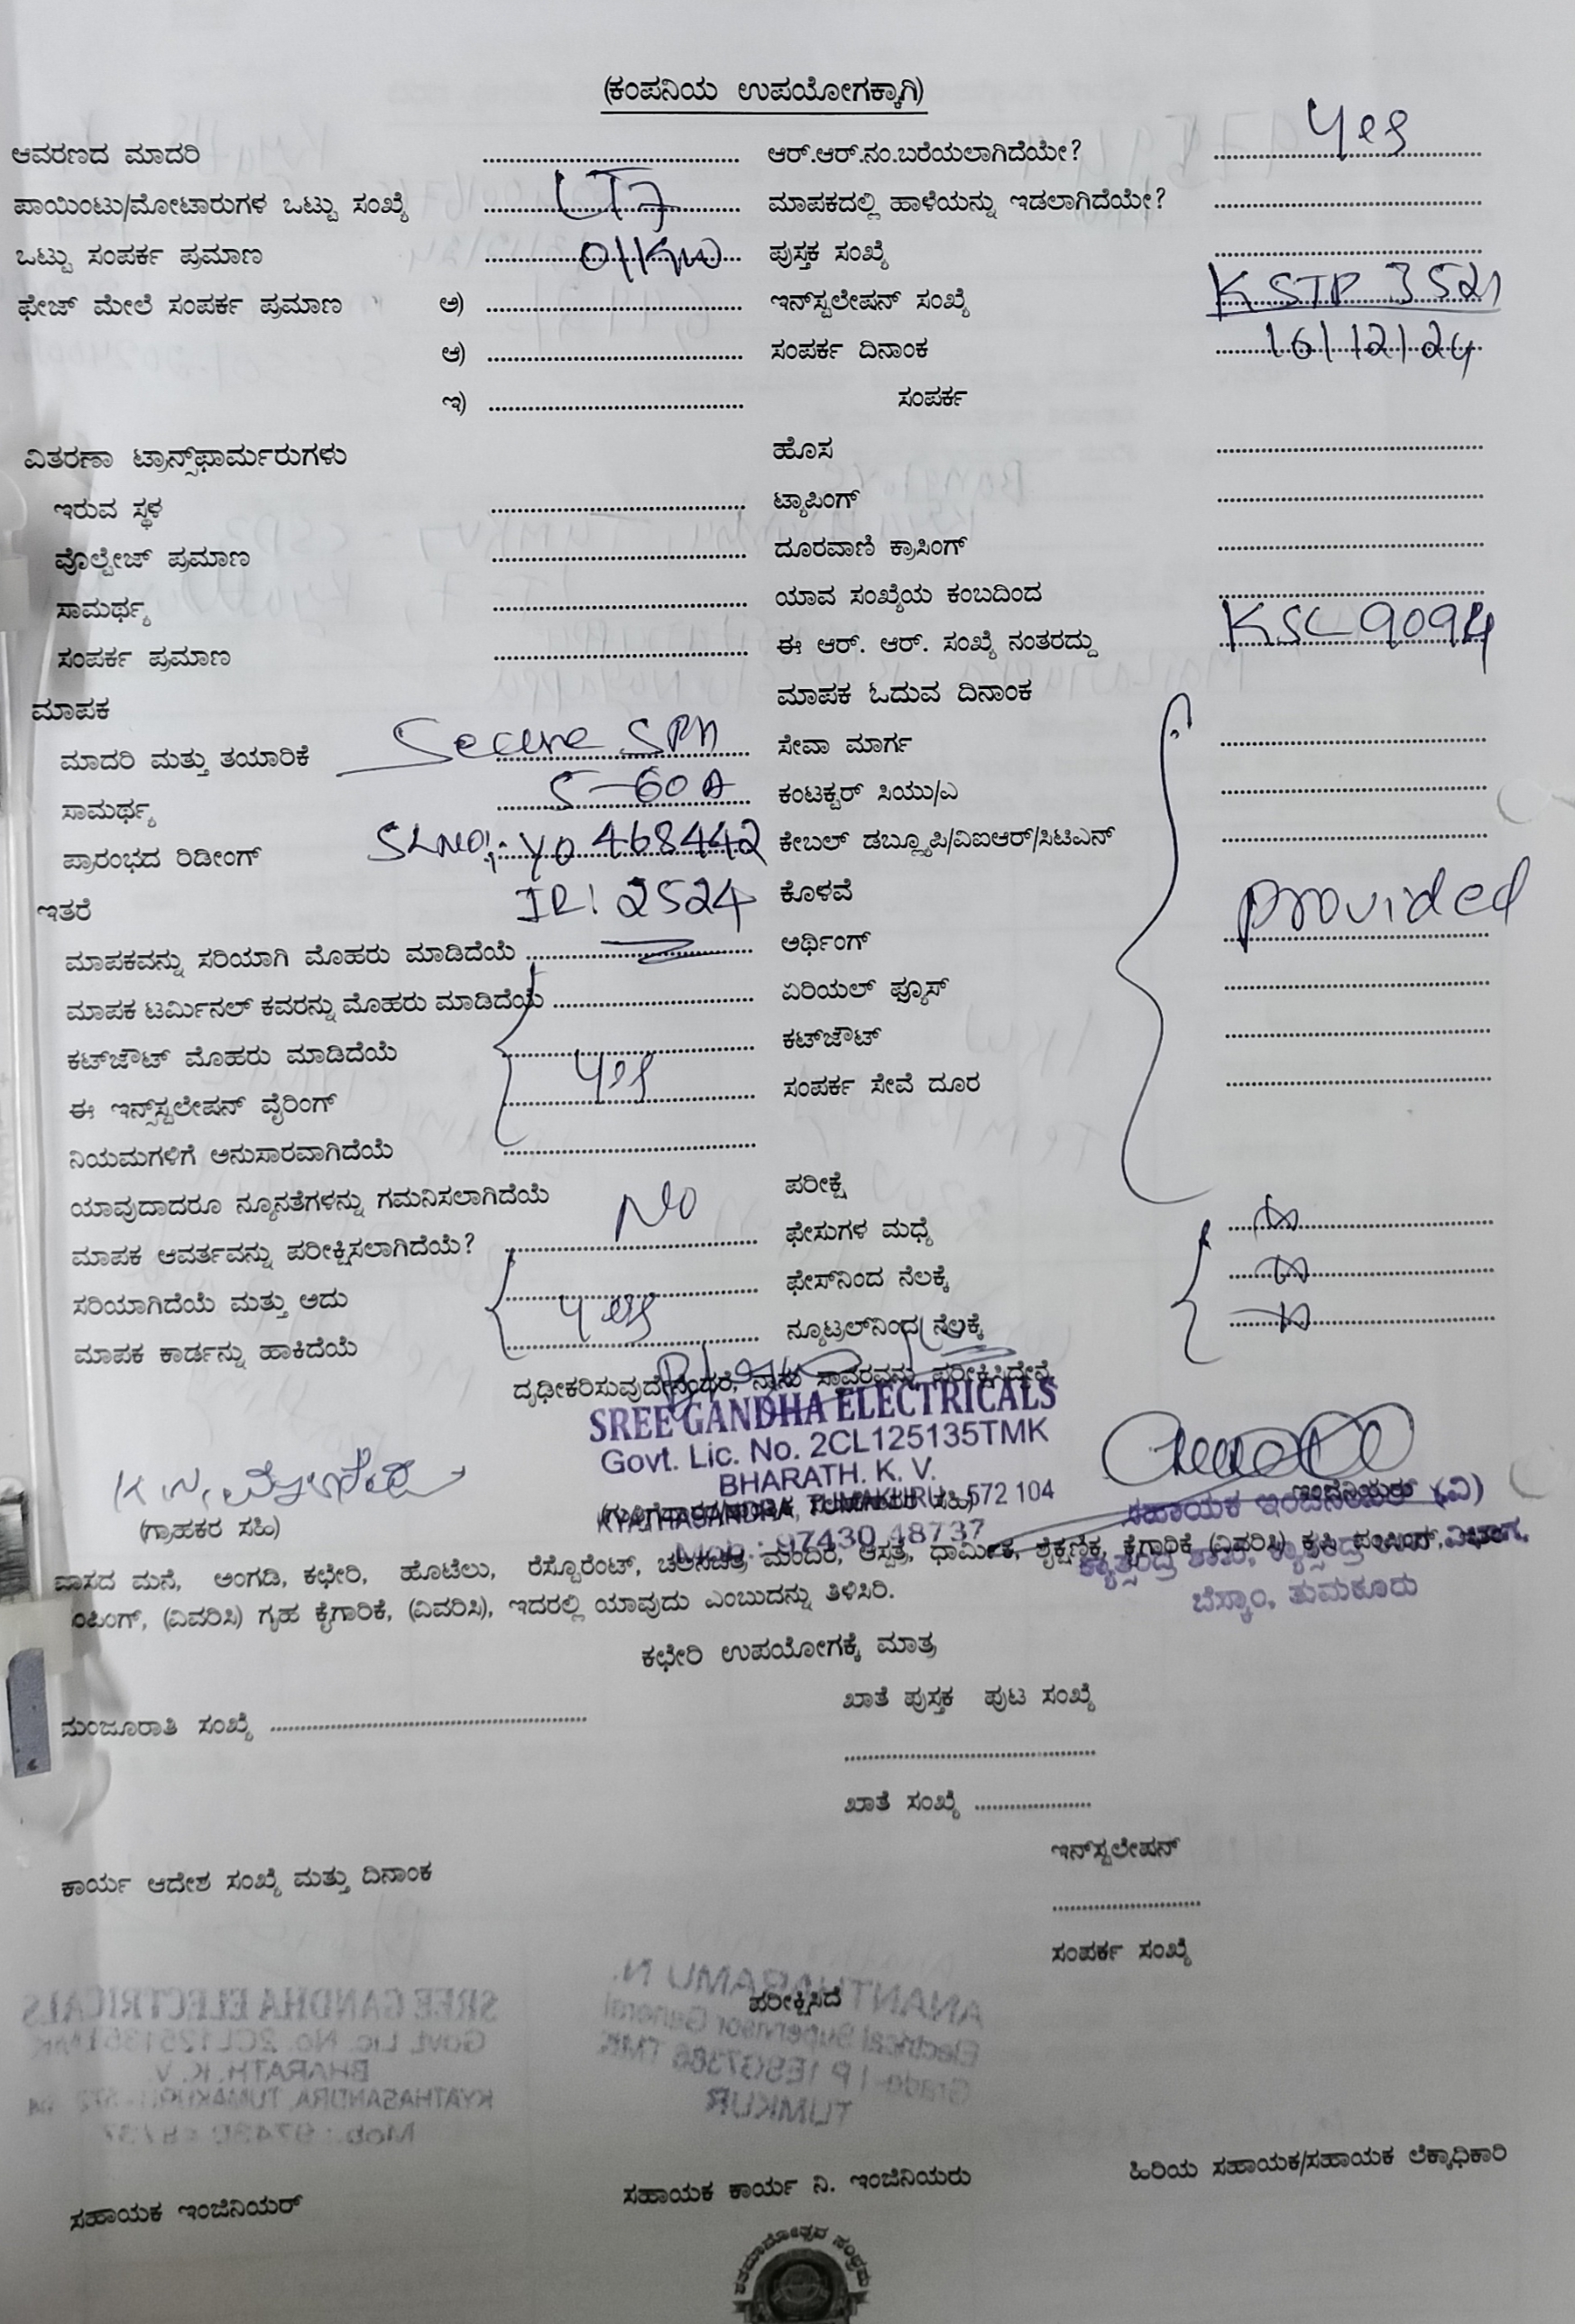 (ಕಂಪನಿಯ ಉಪಯೋಗಕ್ಕಾಗಿ)
ಆವರಣದ ಮಾದರಿ .......... ಆರ್.ಆರ್.ನಂ.ಬರೆಯಲಾಗಿದೆಯೇ? Yes
ಪಾಯಿಂಟು/ಮೋಟಾರುಗಳ ಒಟ್ಟು ಸಂಖ್ಯೆ LT7 ಮಾಪಕದಲ್ಲಿ ಹಾಳೆಯನ್ನು ಇಡಲಾಗಿದೆಯೇ? ..........
ಒಟ್ಟು ಸಂಪರ್ಕ ಪ್ರಮಾಣ 01KW ಪುಸ್ತಕ ಸಂಖ್ಯೆ ..........
ಫೇಜ್ ಮೇಲೆ ಸಂಪರ್ಕ ಪ್ರಮಾಣ ಅ) .......... ಇನ್‌ಸ್ಟಲೇಷನ್ ಸಂಖ್ಯೆ KSTP 3521
ಆ) .......... ಸಂಪರ್ಕ ದಿನಾಂಕ 16/12/24
ಇ) .......... ಸಂಪರ್ಕ
ವಿತರಣಾ ಟ್ರಾನ್ಸ್‌ಫಾರ್ಮರುಗಳು ಹೊಸ ..........
ಇರುವ ಸ್ಥಳ .......... ಟ್ಯಾಪಿಂಗ್ ..........
ವೊಲ್ಟೇಜ್ ಪ್ರಮಾಣ .......... ದೂರವಾಣಿ ಕ್ರಾಸಿಂಗ್ ..........
ಸಾಮರ್ಥ್ಯ .......... ಯಾವ ಸಂಖ್ಯೆಯ ಕಂಬದಿಂದ ..........
ಸಂಪರ್ಕ ಪ್ರಮಾಣ .......... ಈ ಆರ್. ಆರ್. ಸಂಖ್ಯೆ ನಂತರದ್ದು KSL 9094
ಮಾಪಕ ಮಾಪಕ ಓದುವ ದಿನಾಂಕ
ಮಾದರಿ ಮತ್ತು ತಯಾರಿಕೆ Secure SPM ಸೇವಾ ಮಾರ್ಗ ..........
ಸಾಮರ್ಥ್ಯ 5-60A ಕಂಟಕ್ಟರ್ ಸಿಯು/ಎ ..........
ಪ್ರಾರಂಭದ ರಿಡೀಂಗ್ SLNO:- Y0468442 ಕೇಬಲ್ ಡಬ್ಲ್ಯೂಪಿ/ವಿಐಆರ್/ಸಿಟಿಎಸ್ ..........
ಇತರೆ IR: 2524 ಕೊಳವೆ provided
ಮಾಪಕವನ್ನು ಸರಿಯಾಗಿ ಮೊಹರು ಮಾಡಿದೆಯೆ .......... ಅರ್ಥಿಂಗ್ ..........
ಮಾಪಕ ಟರ್ಮಿನಲ್ ಕವರನ್ನು ಮೊಹರು ಮಾಡಿದೆಯೆ .......... ಏರಿಯಲ್ ಫ್ಯೂಸ್ ..........
ಕಟ್‌ಔಟ್ ಮೊಹರು ಮಾಡಿದೆಯೆ .......... ಕಟ್‌ಔಟ್ ..........
ಈ ಇನ್‌ಸ್ಟಲೇಷನ್ ವೈರಿಂಗ್ Yes ಸಂಪರ್ಕ ಸೇವೆ ದೂರ ..........
ನಿಯಮಗಳಿಗೆ ಅನುಸಾರವಾಗಿದೆಯೆ ..........
ಯಾವುದಾದರೂ ನ್ಯೂನತೆಗಳನ್ನು ಗಮನಿಸಲಾಗಿದೆಯೆ NO ಪರೀಕ್ಷೆ
ಮಾಪಕ ಆವರ್ತವನ್ನು ಪರೀಕ್ಷಿಸಲಾಗಿದೆಯೆ? .......... ಫೇಸುಗಳ ಮಧ್ಯೆ ..........
ಸರಿಯಾಗಿದೆಯೆ ಮತ್ತು ಅದು Yes ಫೇಸ್‌ನಿಂದ ನೆಲಕ್ಕೆ ..........
ಮಾಪಕ ಕಾರ್ಡನ್ನು ಹಾಕಿದೆಯೆ .......... ನ್ಯೂಟ್ರಲ್‌ನಿಂದ ನೆಲಕ್ಕೆ ..........
ದೃಢೀಕರಿಸುವುದೇನೆಂದರೆ, ನಾನು ಸ್ಥಾವರವನ್ನು ಪರೀಕ್ಷಿಸಿದ್ದೇನೆ.
SREE GANDHA ELECTRICALS
Govt. Lic. No. 2CL125135TMK
BHARATH. K. V.
KYATHASANDRA, TUMAKURU - 572 104
Mob.: 97430 48737
(ಗ್ರಾಹಕರ ಸಹಿ)
ಸಹಾಯಕ ಇಂಜಿನಿಯರ್ (ವಿ)
ಬೆಸ್ಕಾಂ, ತುಮಕೂರು
ವಾಸದ ಮನೆ, ಅಂಗಡಿ, ಕಛೇರಿ, ಹೊಟೆಲು, ರೆಸ್ಟೊರೆಂಟ್, ಚಲನಚಿತ್ರ ಮಂದಿರ, ಆಸ್ಪತ್ರೆ, ಧಾರ್ಮಿಕ, ಶೈಕ್ಷಣಿಕ, ಕೈಗಾರಿಕೆ (ವಿವರಿಸಿ) ಕೃಷಿ ಪಂಪಿಂಗ್,
ಪಂಪಿಂಗ್, (ವಿವರಿಸಿ) ಗೃಹ ಕೈಗಾರಿಕೆ, (ವಿವರಿಸಿ), ಇದರಲ್ಲಿ ಯಾವುದು ಎಂಬುದನ್ನು ತಿಳಿಸಿರಿ.
ಕಛೇರಿ ಉಪಯೋಗಕ್ಕೆ ಮಾತ್ರ
ಖಾತೆ ಪುಸ್ತಕ ಪುಟ ಸಂಖ್ಯೆ
ಮಂಜೂರಾತಿ ಸಂಖ್ಯೆ ..........
ಖಾತೆ ಸಂಖ್ಯೆ ..........
ಇನ್‌ಸ್ಟಲೇಷನ್
ಕಾರ್ಯ ಆದೇಶ ಸಂಖ್ಯೆ ಮತ್ತು ದಿನಾಂಕ
ಸಂಪರ್ಕ ಸಂಖ್ಯೆ
ಪರೀಕ್ಷಿಸಿದೆ
ಸಹಾಯಕ ಇಂಜಿನಿಯರ್ ಸಹಾಯಕ ಕಾರ್ಯ ನಿ. ಇಂಜಿನಿಯರು ಹಿರಿಯ ಸಹಾಯಕ/ಸಹಾಯಕ ಲೆಕ್ಕಾಧಿಕಾರಿ